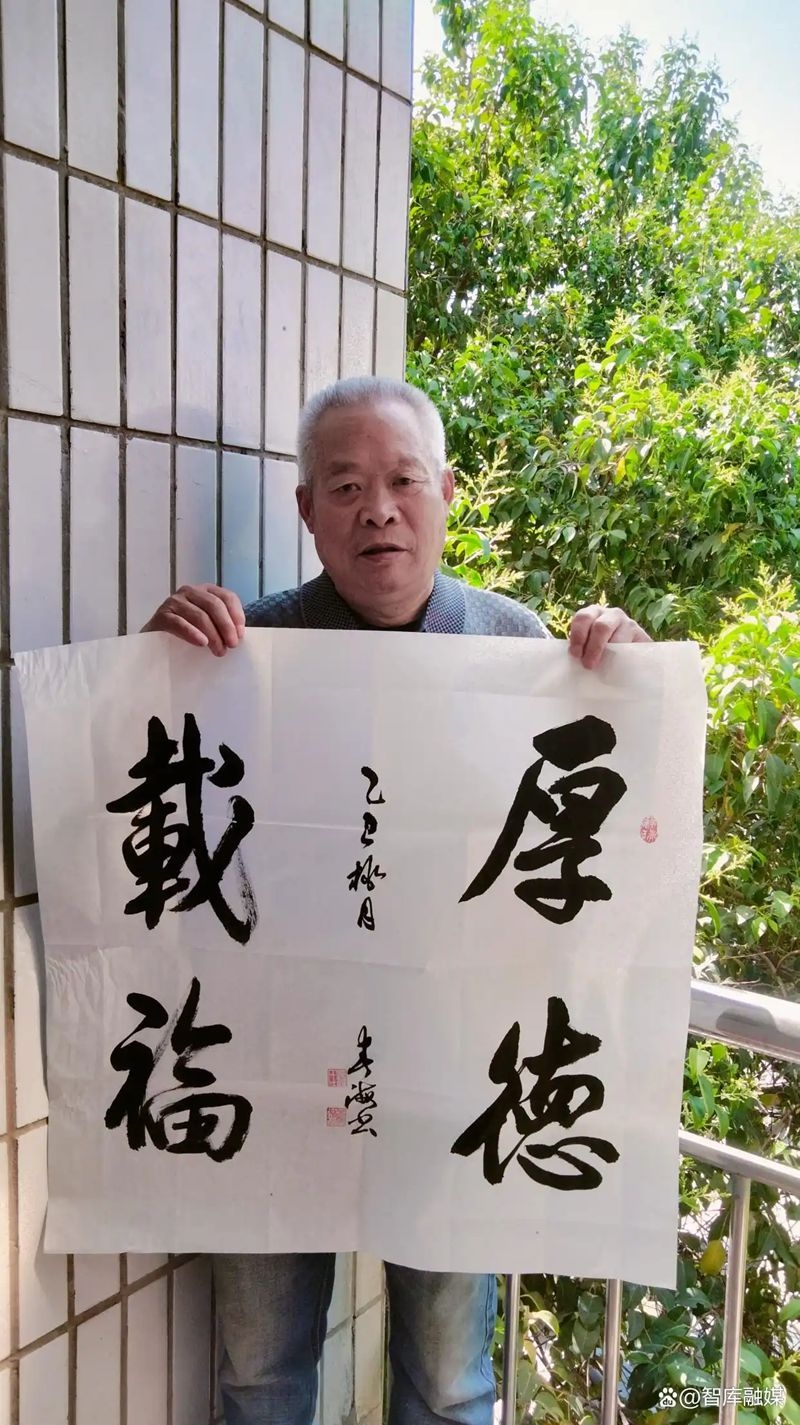 厚德
載福
乙巳梅月
春海书
@智库融媒